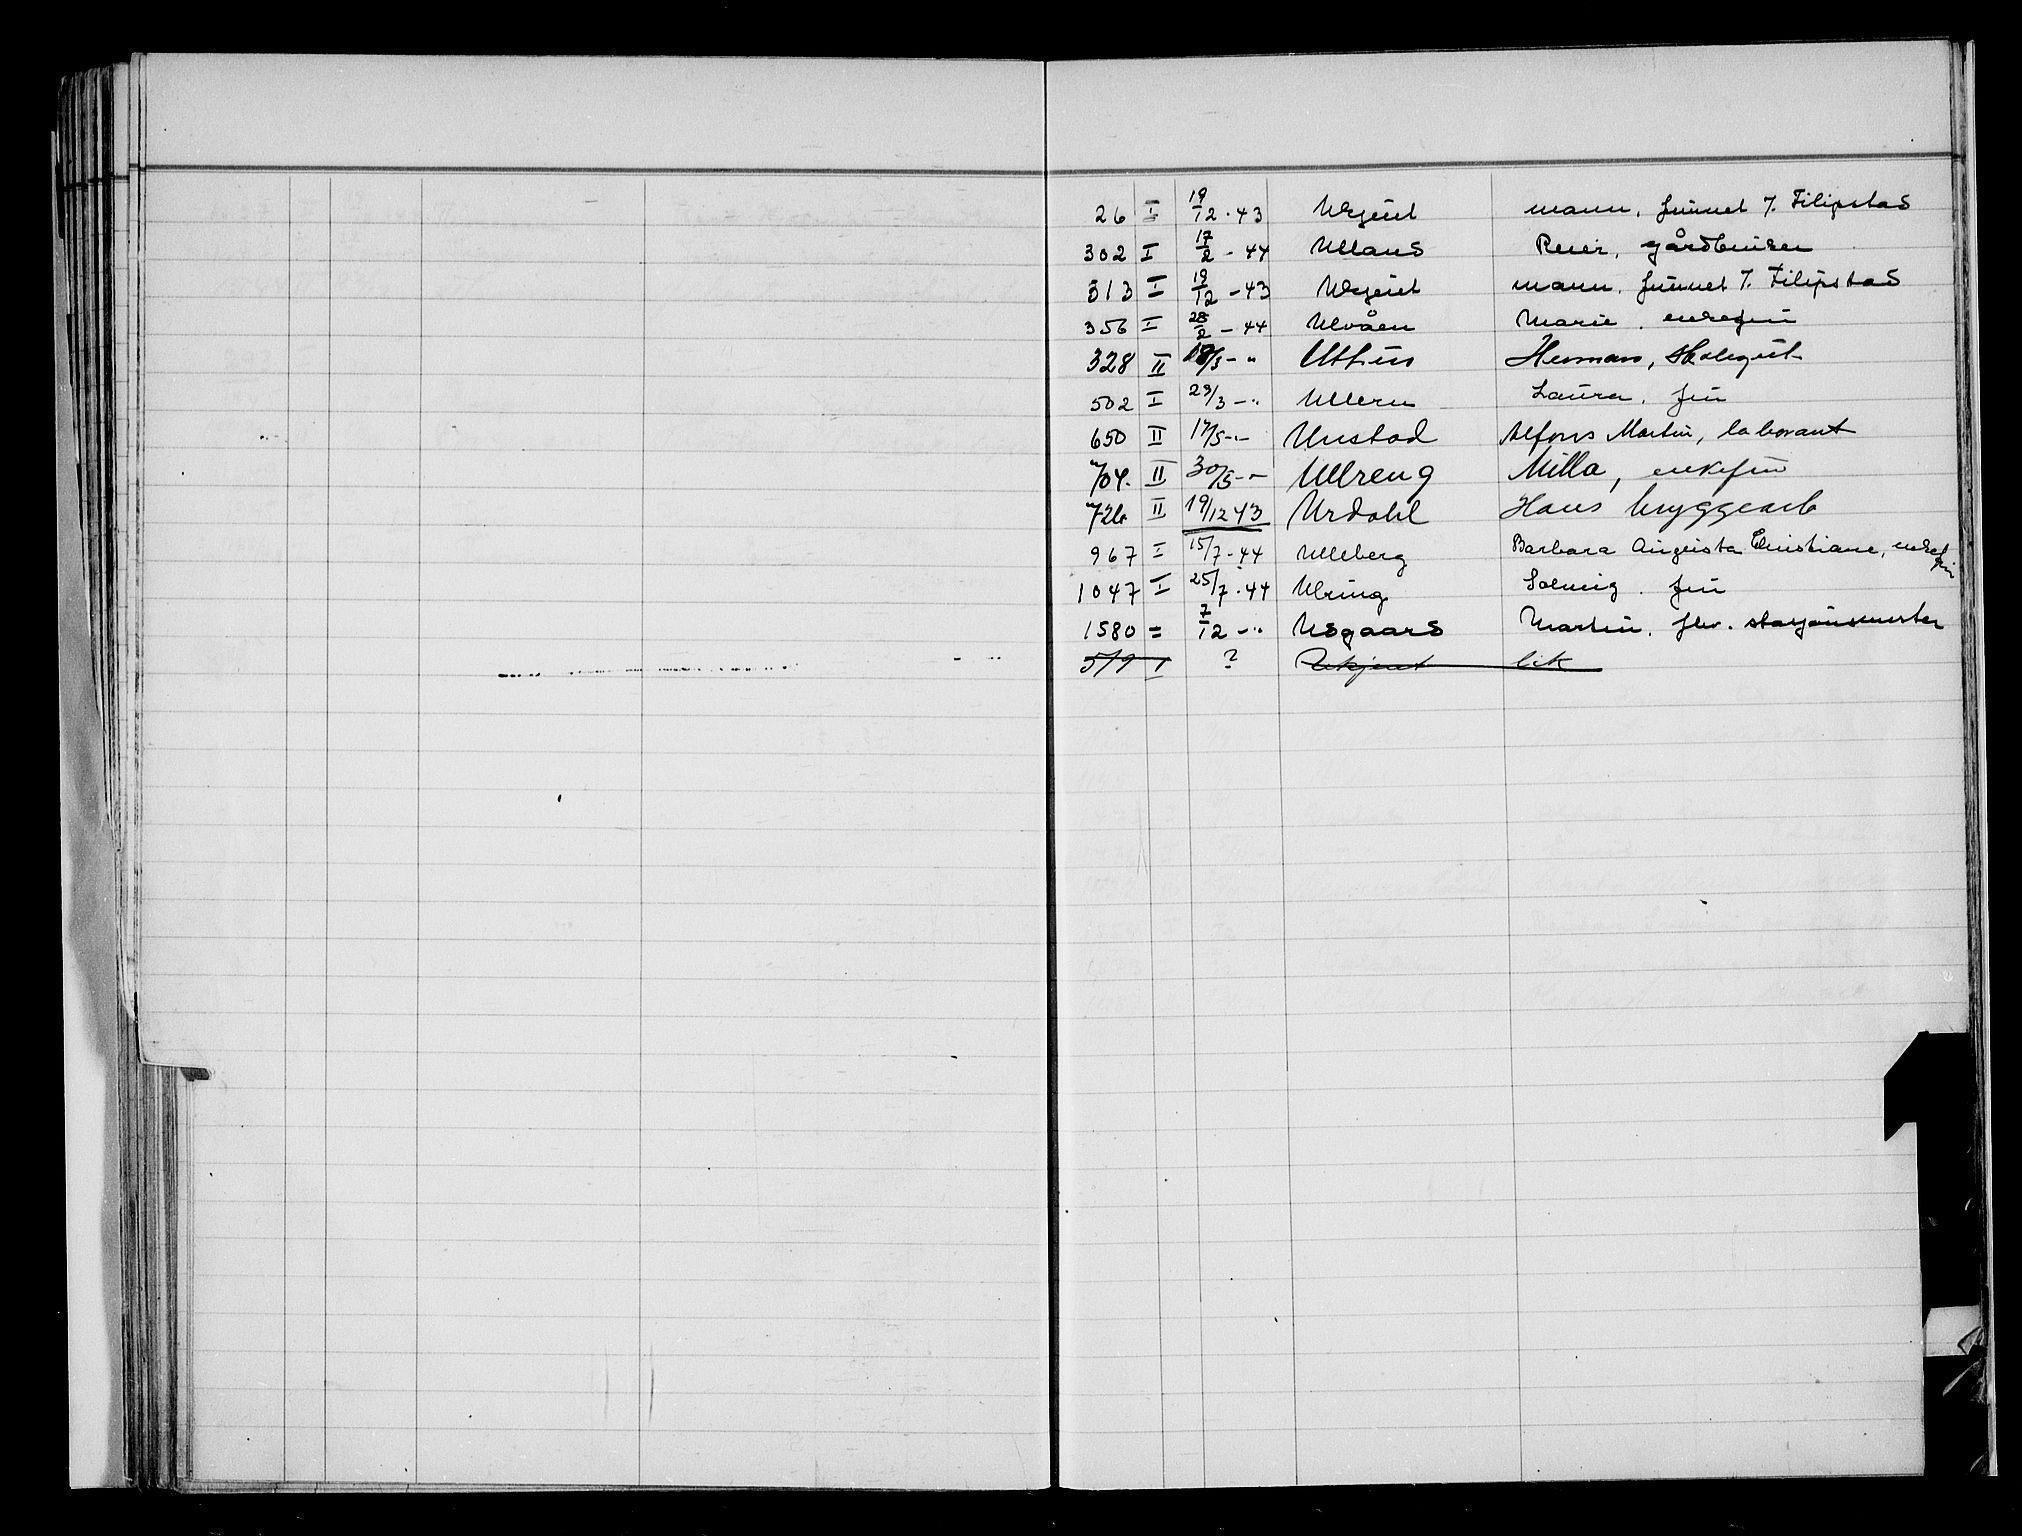 26 I 19/12 - 43 Ukjent mann, funnet I. Filipstad
302 I 17/2 - 44 Ulland Reier, gårdbruker
513 I 19/12 - 43 Ukjent mann, funnet I. Filipstad
356 I 28/2 - 44 Ulvåen Marie, enkefru
328 II /3 - " Uthus Herman, skolegut
502 I 29/3 - " Ullern Laura, fru
650 II 17/5 - - Unstad Alfons Martin, laborant
704. II 30/5 - - Ullreng Milla, enkefru
726 II 19/12 43 Urdahl Hans bryggearb
967 I 15/7 - 44 Ulleberg Barbara Augusta Christiane, enkefru
1047 I 25/7 - 44 Ulring Solveig, fru
1580 = 7/12 - " Usgaard Martin, fhv. stasjonsmester
519 I ? Ukjent lik